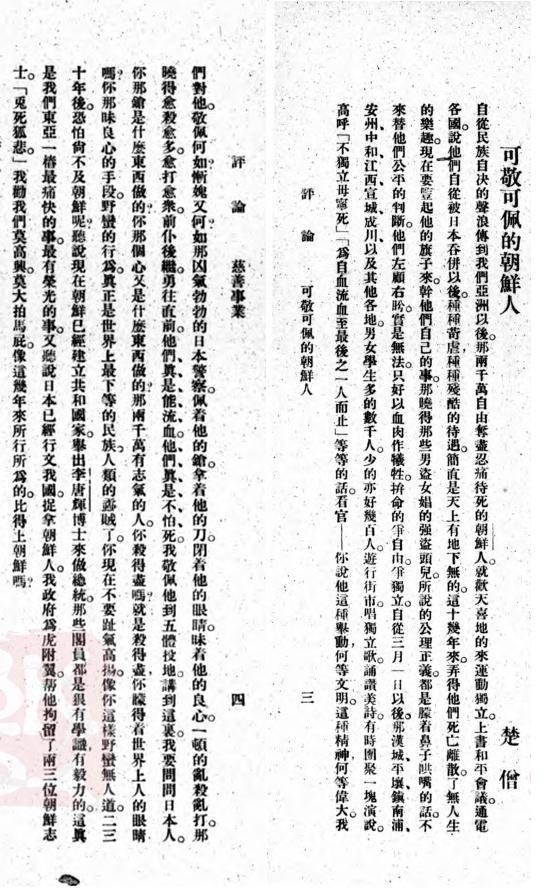 可敬可佩的朝鮮人
楚僧
自從民族自决的聲浪傳到我們亞洲以後。那兩千萬自由奪盡忍痛待死的朝鮮人。就歡天喜地的來運動獨立。上書和平會議通電
各國說他們自從被日本吞併以後種種苛虐種種殘酷的待遇。簡直是天上有地下無的。這十幾年來弄得他們死亡離散了無人生
的樂趣。現在要豎起他的旗子來幹他們自己的事。那曉得那些男盜女娼的強盜頭兒所說的公理正義。都是朦着鼻子哄嘴的話。不
來替他們公平的判斷。他們左顧右盼實是無法。只好以血肉作犧牲拚命的爭自由爭獨立。自從三月一日以後。那漢城平壤鎮南浦、
安州中和江西宣城成川以及其他各地男女學生多的數千人少的亦好幾百人。遊行街市。唱獨立歌誦讚美詩。有時團聚一塊演說。
高呼「不獨立毋寧死」「爲自血流血至最後之一人而止」等等的話。看官——你說他這種舉動何等文明。這種精神何等偉大。我
評論 可敬可佩的朝鮮人 三
評論 慈善事業 四
們對他敬佩何如慚愧又何如。那凶氣勃勃的日本警察佩着他的鎗拿着他的刀閉着他的眼睛昧着他的良心。一頓的亂殺亂打。那
曉得愈殺愈多愈打愈衆。前仆後繼勇往直前。他們眞是能流血他們眞是不怕死。我敬佩他到五體投地。講到這裏我要問問日本人。
你那鎗是什麼東西做的?你那個心又是什麼東西做的?那兩千萬有志氣的人。你殺得盡嗎?就是殺得盡。你朦得着世界上人的眼睛
嗎?你那昧良心的手段。野蠻的行爲。眞正是世界上最下等的民族。人類的蟊賊了。你現在不要趾氣高揚。像你這樣野蠻無人道。二三
十年後恐怕尙不及朝鮮呢?聽說現在朝鮮已經建立共和國家。舉出李唐輝博士來做總統。那些閣員都是狠有學識有毅力的。這眞
是我們東亞一樁最痛快的事。最有榮光的事。又聽說日本已經行文我國捉拿朝鮮人。我政府爲虎附翼幫他拘留了兩三位朝鮮志
士。「兎死狐悲」我勸我們莫高興。莫大拍馬屁。像這幾年來所行所爲的。比得上朝鮮嗎?